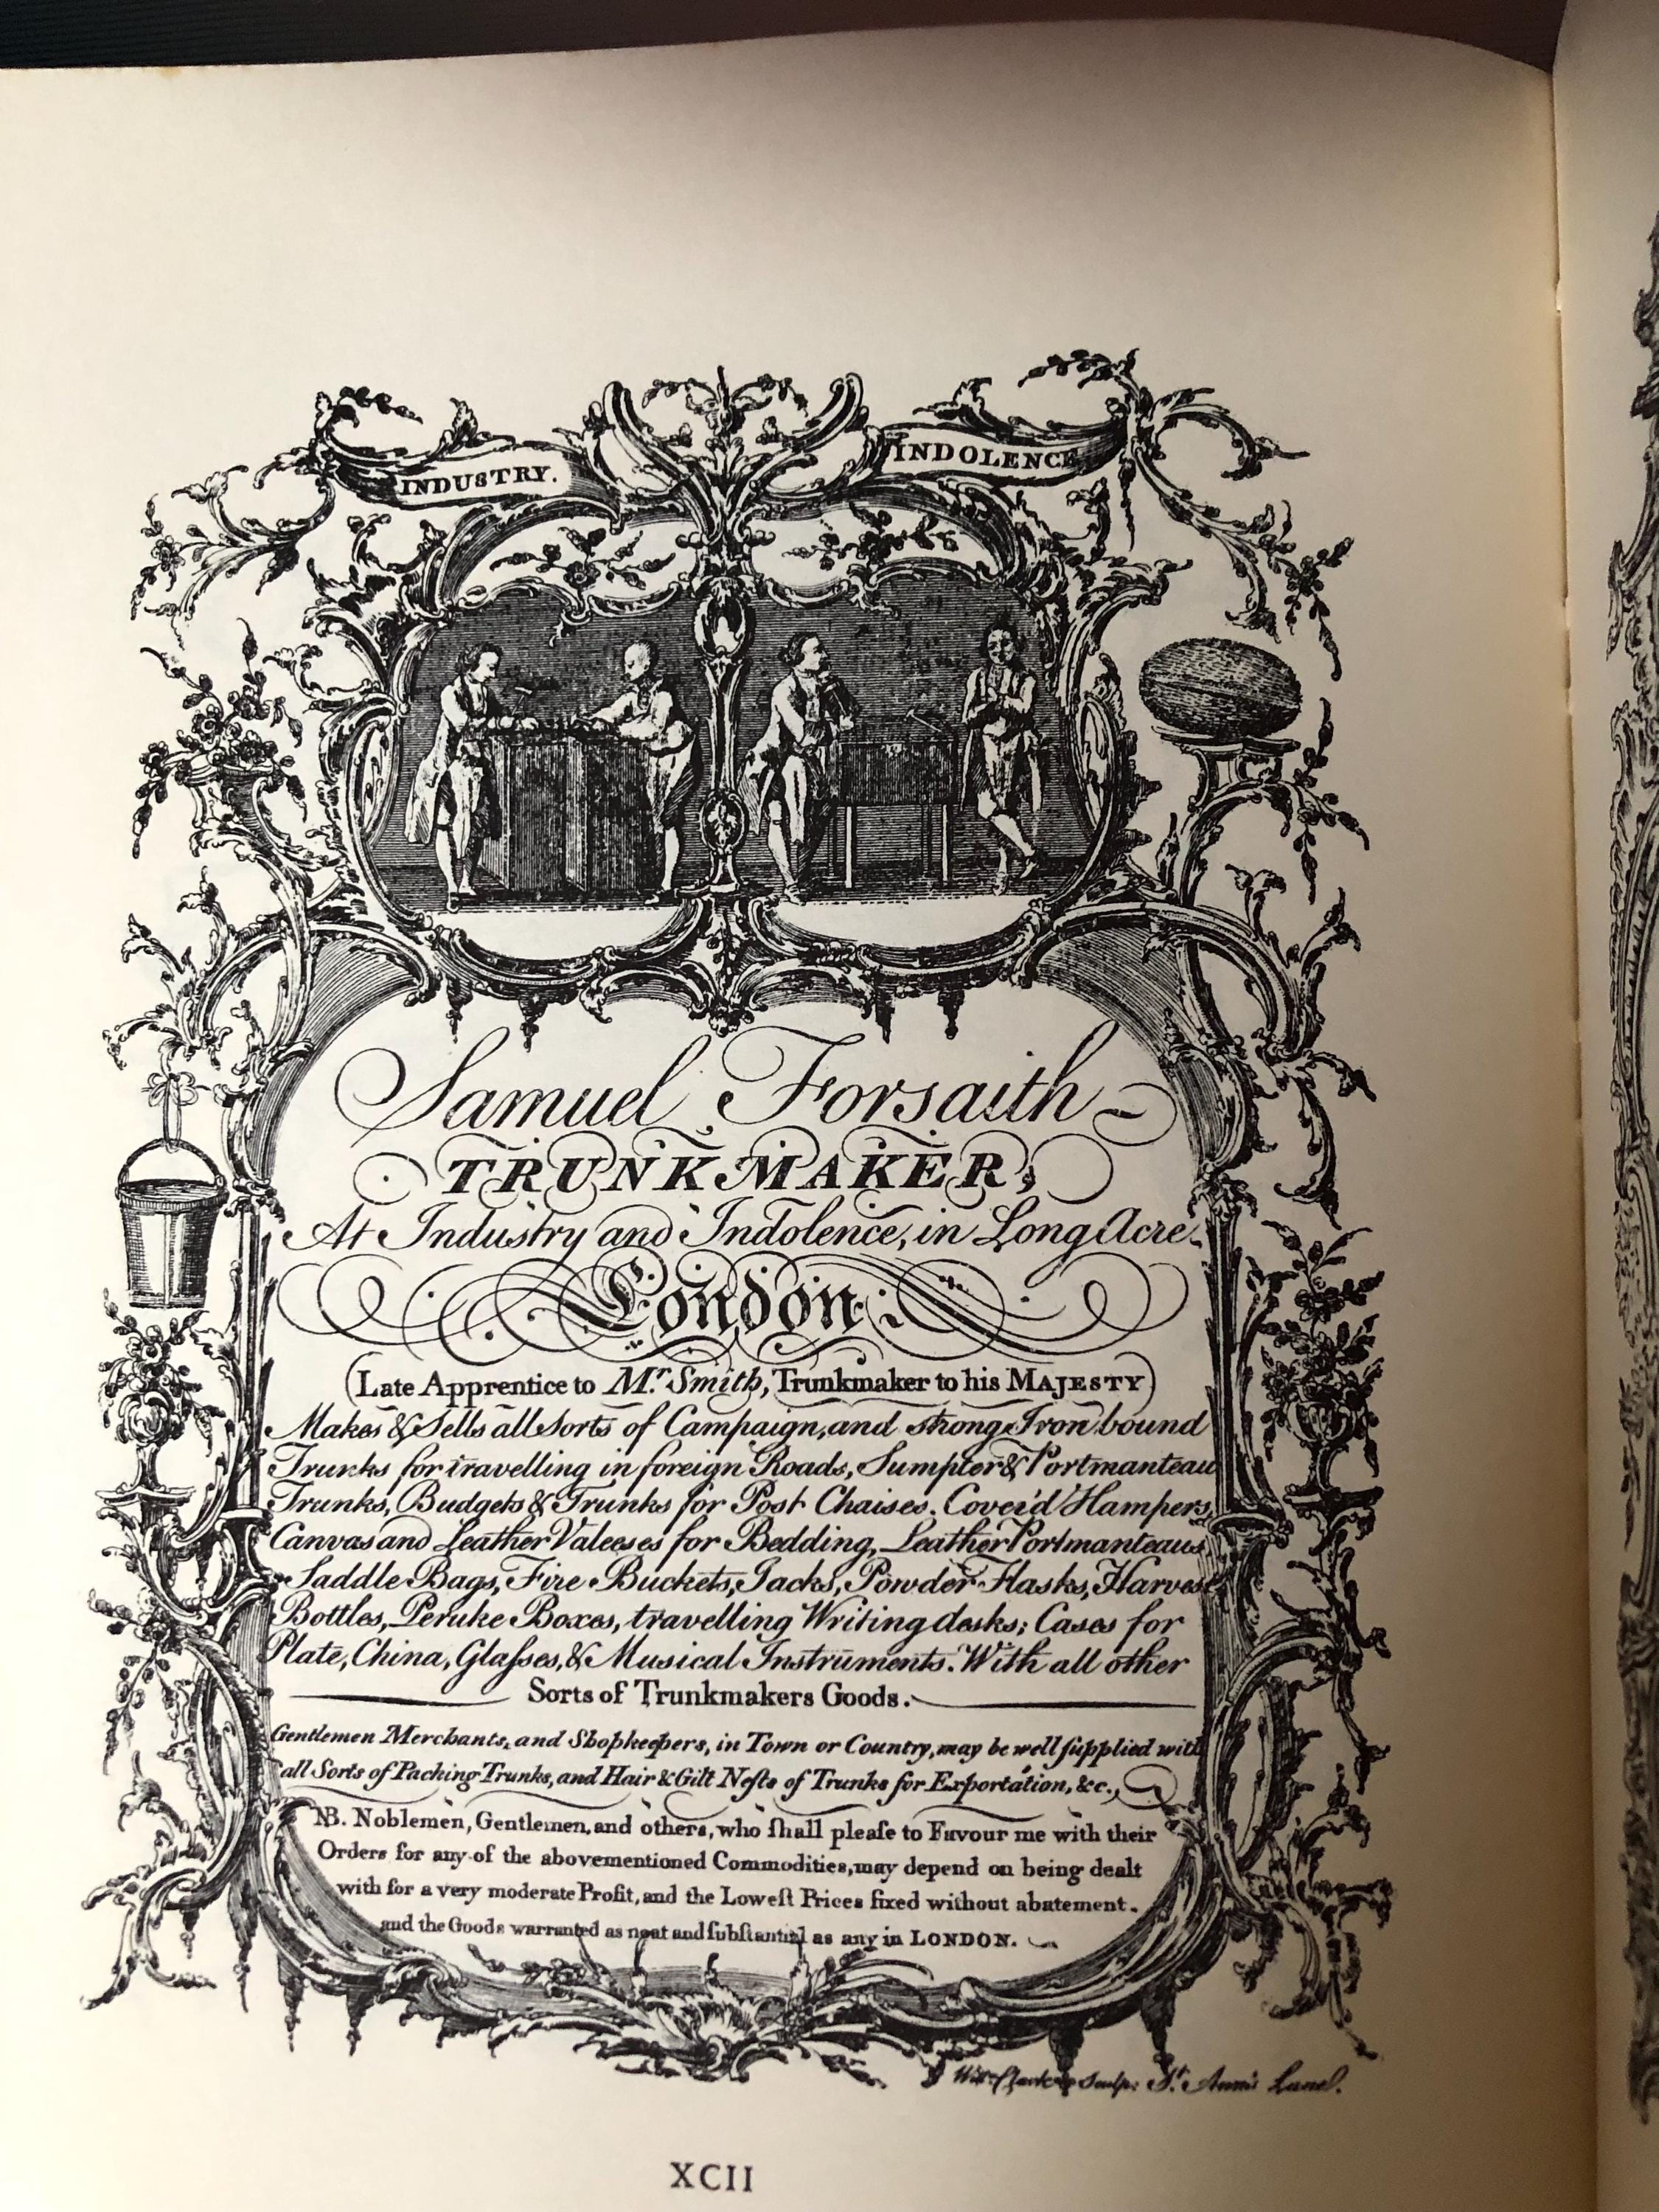 INDUSTRY.
INDOLENCE
Samuel Forsaith
TRUNKMAKER,
At Industry and Indolence, in Long Acre.
London.
(Late Apprentice to Mr. Smith, Trunkmaker to his MAJESTY)
Makes & Sells all Sorts of Campaign, and strong Iron bound
Trunks for travelling in foreign Roads, Sumpter & Portmanteau
Trunks, Budgets & Trunks for Post Chaises. Cover'd Hampers,
Canvas and Leather Valeeses for Bedding, Leather Portmanteaus,
Saddle Bags, Fire Buckets, Jacks, Powder Flasks, Harvest
Bottles, Peruke Boxes, travelling Writing desks; Cases for
Plate, China, Glaſses, & Musical Instruments. With all other
Sorts of Trunkmakers Goods.
Gentlemen Merchants, and Shopkeepers, in Town or Country, may be well ſupplied with
all Sorts of Packing Trunks, and Hair & Gilt Neſts of Trunks for Exportation, &c.,
NB. Noblemen, Gentlemen, and others, who ſhall pleaſe to Favour me with their
Orders for any of the abovementioned Commodities, may depend on being dealt
with for a very moderate Profit, and the Loweſt Prices fixed without abatement.
and the Goods warranted as neat and ſubſtantial as any in LONDON.
Willm. Clark sculp: St. Ann's Lane.
XCII